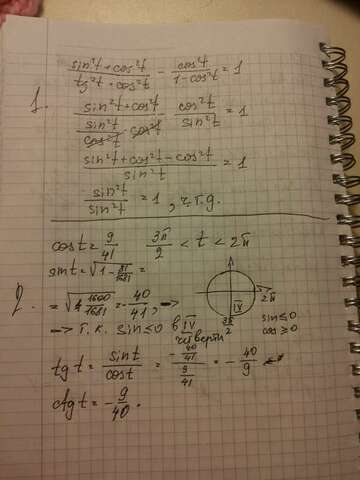 1.
(sin²t + cos²t)/(tg²t · cos²t) − cos²t/(1−cos²t) = 1
(sin²t + cos²t)/((sin²t/cos²t) · cos²t) − cos²t/sin²t = 1
(sin²t + cos²t − cos²t)/sin²t = 1
sin²t/sin²t = 1, ч.т.д.
2.
cost = 9/41 3π/2 < t < 2π
sint = √(1 − 81/1681) =
= √(1600/1681) = −40/41, →
→ т.к. sin≤0 в IV четверти
IV 2π 3π/2
sin≤0
cos≥0
tgt = sint/cost = (−40/41)/(9/41) = −40/9
ctgt = −9/40.